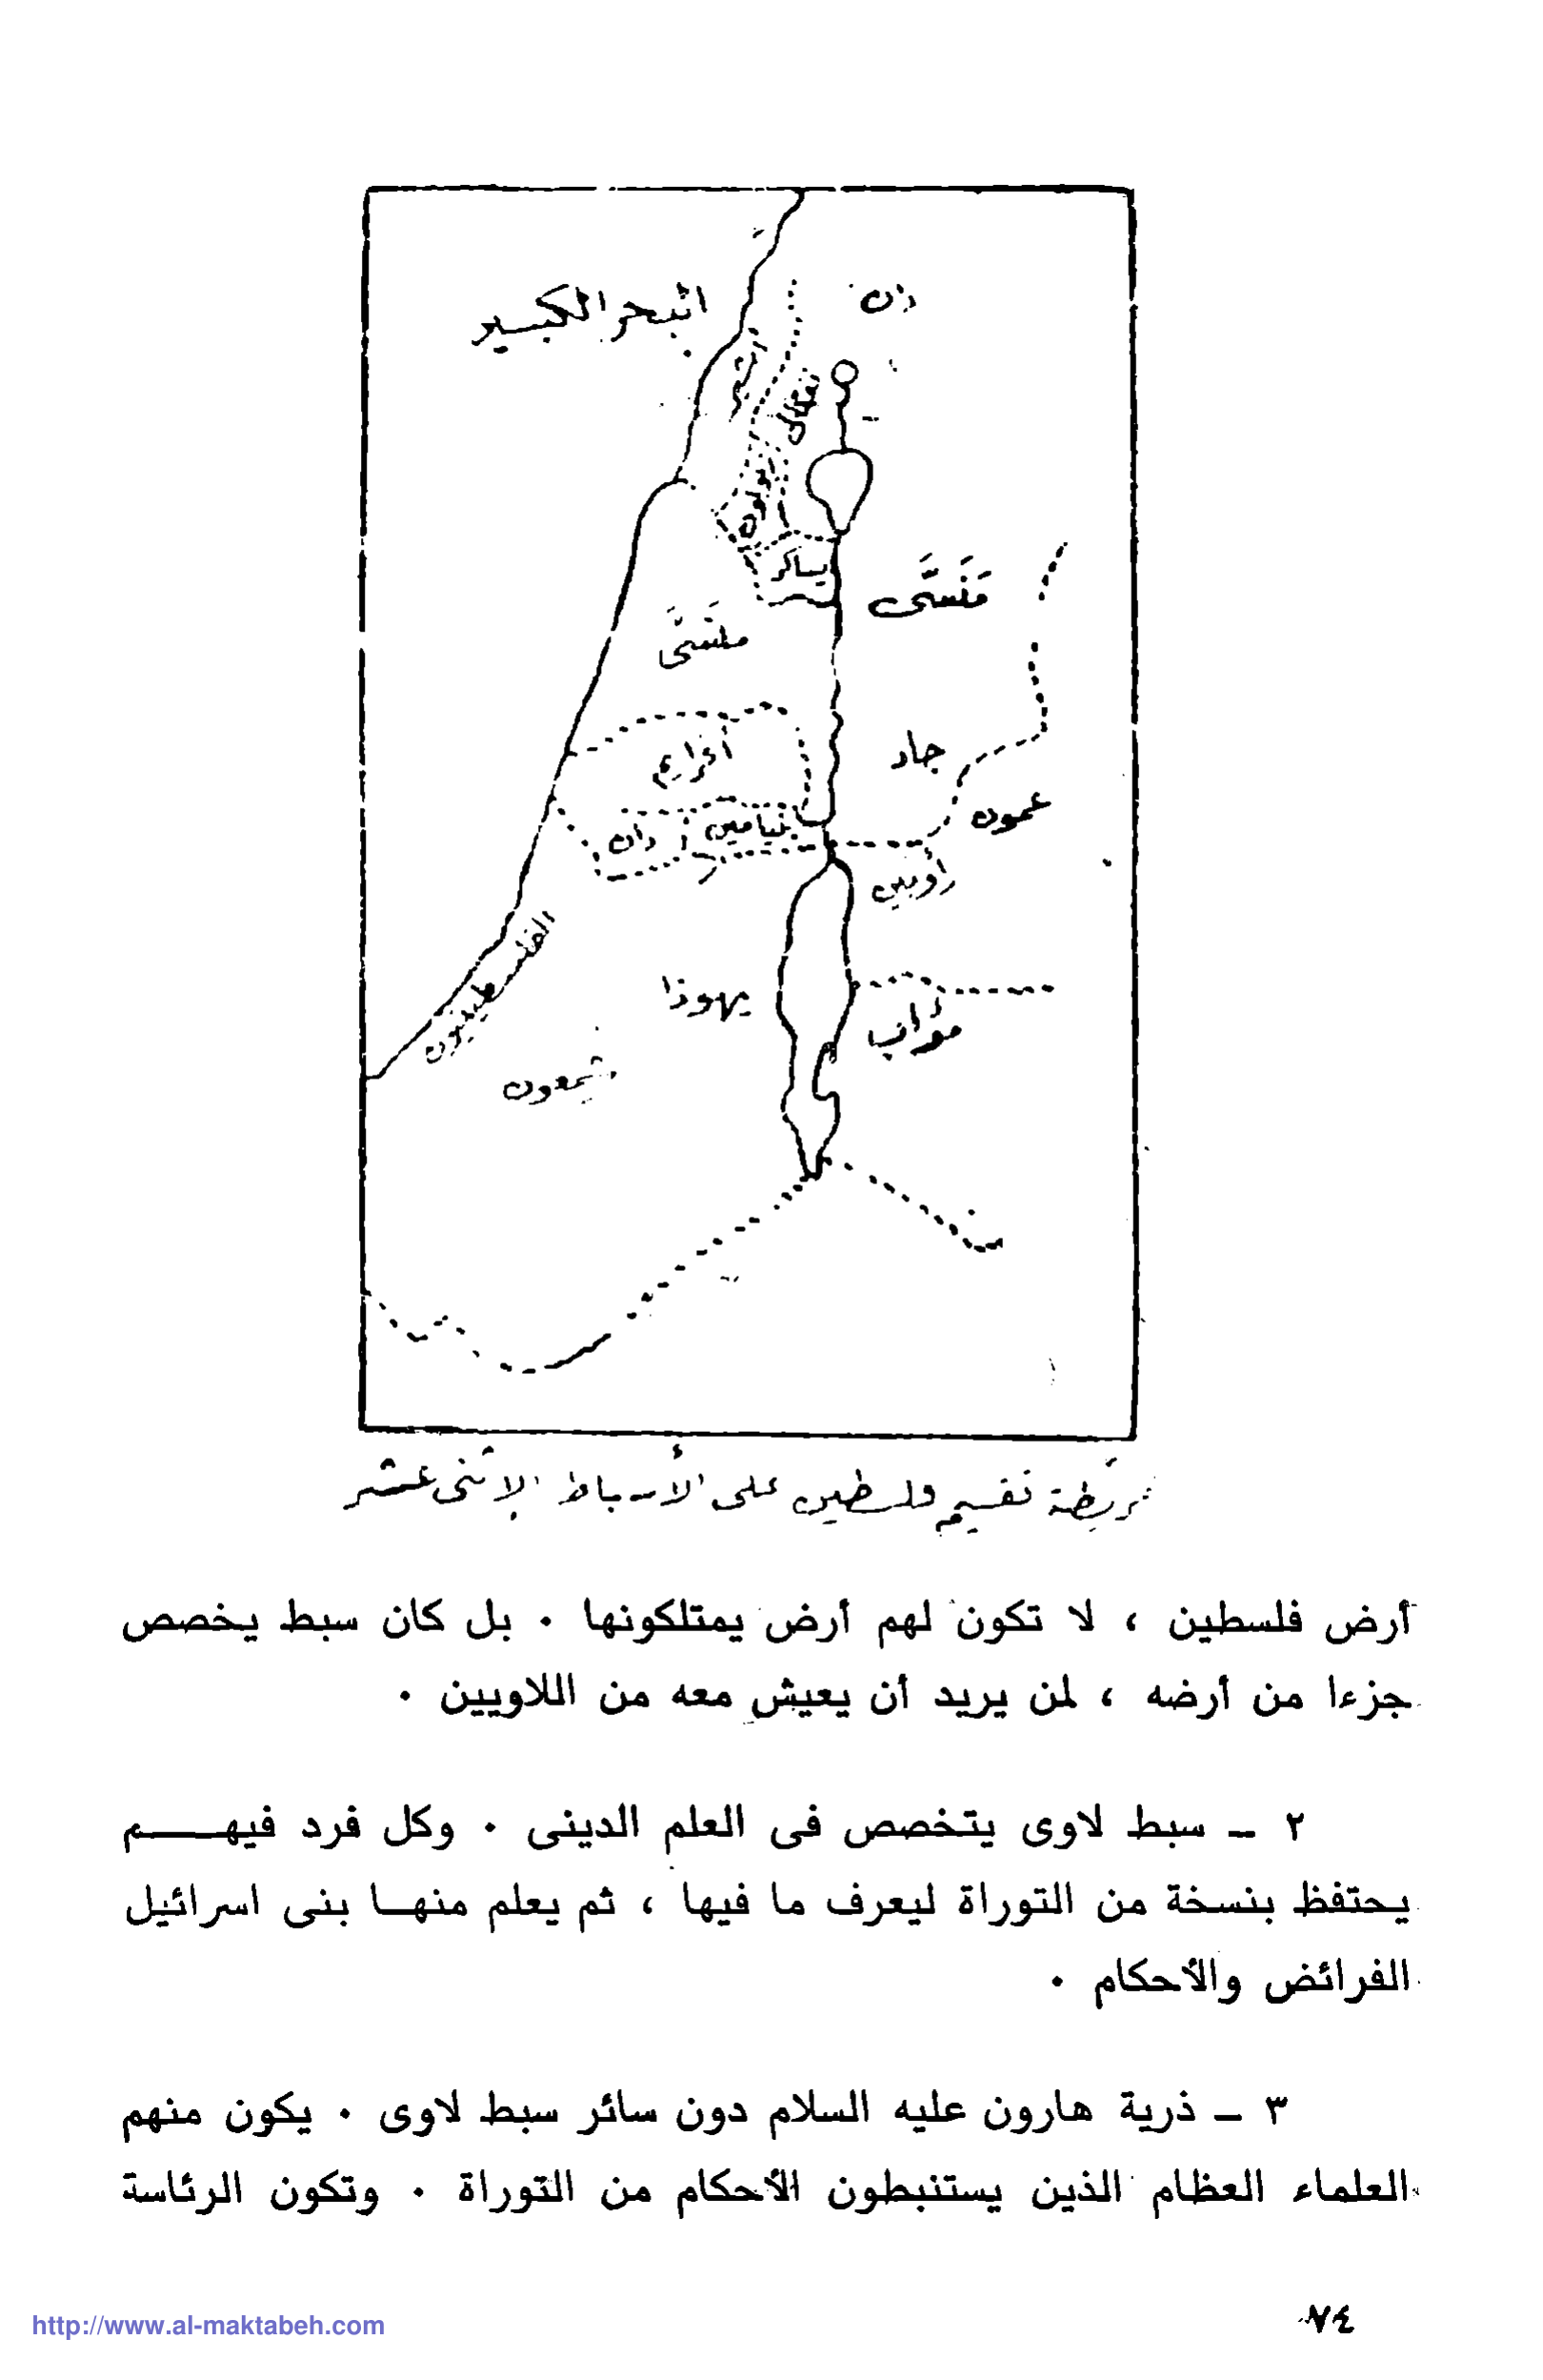 دان
البحر الكبير
أشير
نفتالى
زبولون
يساكر
مَنَسَّى
منسَّى
أفرايم
جاد
عمون
بنيامين
دان
رأوبين
الفلسطينيون
يهوذا
موآب
شمعون
خريطة تقسيم فلسطين على الأسباط الإثنى عشر
أرض فلسطين ، لا تكون لهم أرض يمتلكونها ٠ بل كان سبط يخصص
جزءا من أرضه ، لمن يريد أن يعيش معه من اللاويين ٠
٢ ــ سبط لاوى يتخصص فى العلم الدينى ٠ وكل فرد فيهـــم
يحتفظ بنسخة من التوراة ليعرف ما فيها ، ثم يعلم منهـا بنى اسرائيل
الفرائض والأحكام ٠
٣ ــ ذرية هارون عليه السلام دون سائر سبط لاوى ٠ يكون منهم
العلماء العظام الذين يستنبطون الأحكام من التوراة ٠ وتكون الرئاسة
٧٤
http://www.al-maktabeh.com